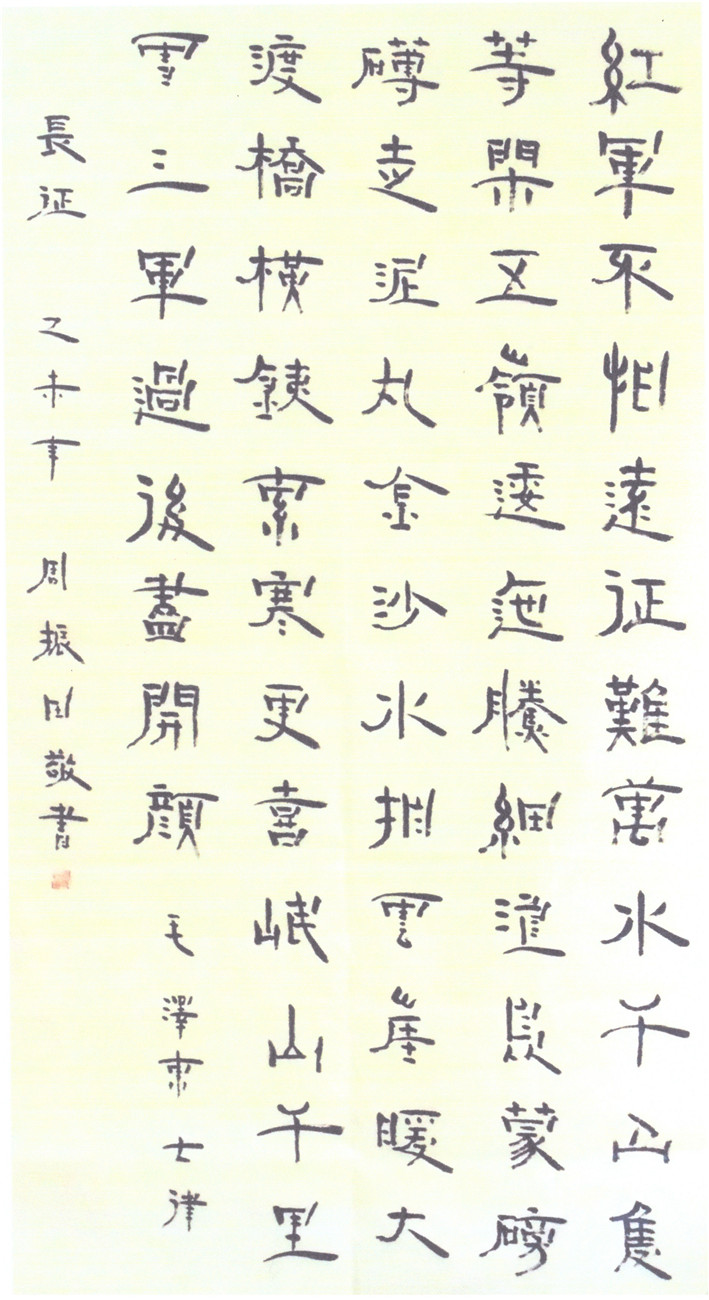 紅軍不怕遠征難萬水千山隻
等閑五嶺逶迤騰細浪烏蒙磅
礴走泥丸金沙水拍雲崖暖大
渡橋橫鐵索寒更喜岷山千里
雪三軍過後盡開顏 毛澤東七律
長征 乙未年 周振 敬書